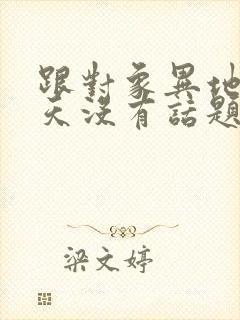 跟對象異地
天沒有話題
梁文婷